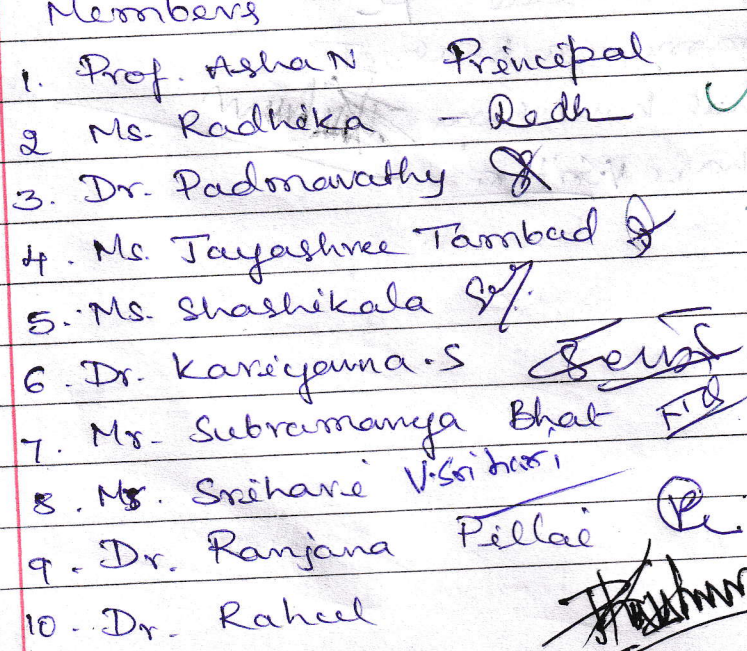 Members
1. Prof. Asha N Principal
2 Ms. Radhika - Radh
3. Dr. Padmavathy
4. Ms. Jayashree Tambad
5. Ms. Shashikala
6. Dr. Kariyanna.S
7. Mr. Subramanya Bhat
8. Mr. Srihari V.Srihari
9. Dr. Ranjana Pillai
10. Dr. Raheel